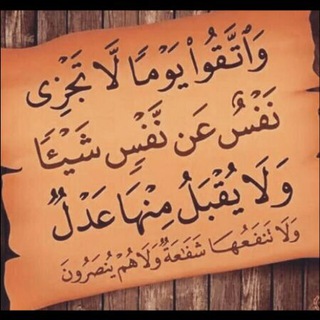 وَٱتَّقُوا۟ يَوۡمًا لَّا تَجۡزِى
نَفۡسٌ عَن نَّفۡسٍ شَيۡـًٔا
وَلَا يُقۡبَلُ مِنۡهَا عَدۡلٌ
وَلَا تَنفَعُهَا شَفَٰعَةٌ وَلَا هُمۡ يُنصَرُونَ